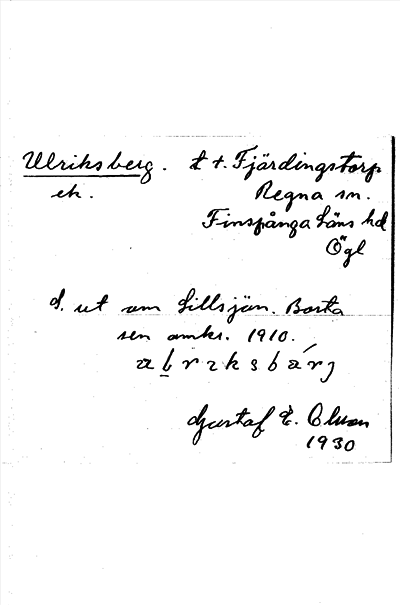 Ulriksberg. t t. Fjärdingstorp
ek. Regna sn.
Finspånga läns hd
Ögl
d. ut om Lillsjön. Borta
sen omkr. 1910.
Gustaf E. Olson
1930